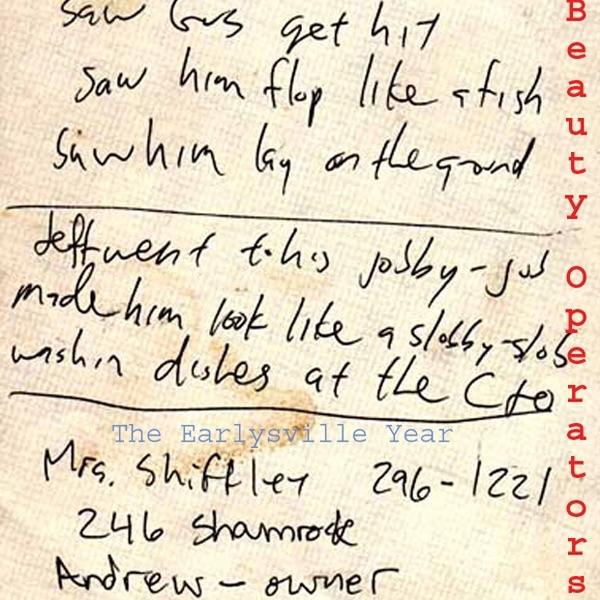 saw Gus get hit
saw him flop like a fish
saw him lay on the ground
Jeff went to his jobby-job
made him look like a slobby-slob
washin dishes at the
The Earlysville Year
Mrs. Shiffley 296-1221
246 Shamrock
Andrew - owner
Beauty Operators